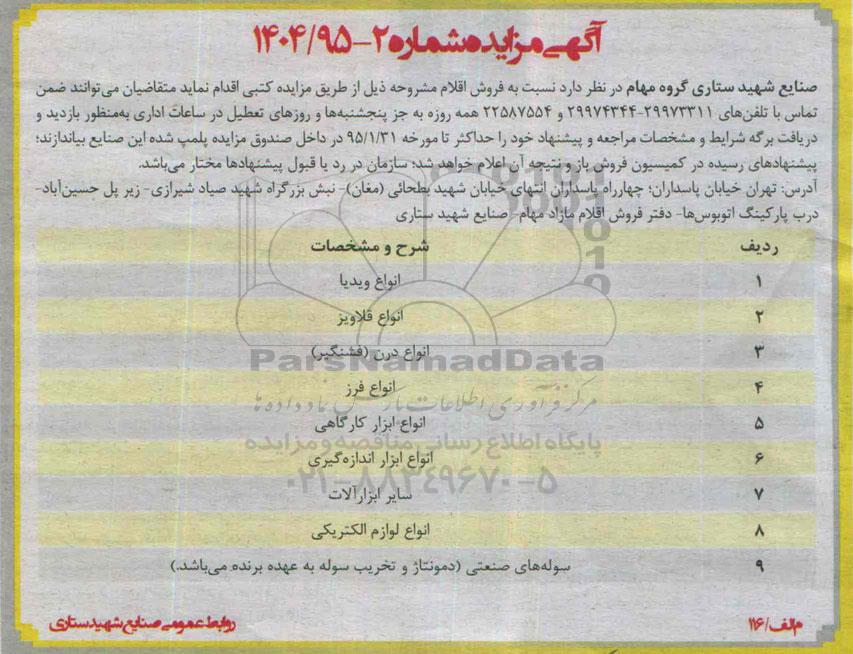 آگهی مزایده شماره ۲-۱۴۰۴/۹۵
صنایع شهید ستاری گروه مهام در نظر دارد نسبت به فروش اقلام مشروحه ذیل از طریق مزایده کتبی اقدام نماید متقاضیان می‌توانند ضمن
تماس با تلفن‌های ۲۹۹۷۳۳۱۱-۲۹۹۷۴۳۴۴ و ۲۲۵۸۷۵۵۴ همه روزه به جز پنجشنبه‌ها و روزهای تعطیل در ساعات اداری به‌منظور بازدید و
دریافت برگه شرایط و مشخصات مراجعه و پیشنهاد خود را حداکثر تا مورخه ۹۵/۱/۳۱ در داخل صندوق مزایده پلمپ شده این صنایع بیاندازند؛
پیشنهادهای رسیده در کمیسیون فروش باز و نتیجه آن اعلام خواهد شد؛ سازمان در رد یا قبول پیشنهادها مختار می‌باشد.
آدرس: تهران خیابان پاسداران؛ چهارراه پاسداران انتهای خیابان شهید بطحائی (مغان)- نبش بزرگراه شهید صیاد شیرازی- زیر پل حسین‌آباد-
درب پارکینگ اتوبوس‌ها- دفتر فروش اقلام مازاد مهام- صنایع شهید ستاری
ردیف شرح و مشخصات
۱ انواع ویدیا
۲ انواع قلاویز
۳ انواع درن (فشنگیر)
۴ انواع فرز
۵ انواع ابزار کارگاهی
۶ انواع ابزار اندازه‌گیری
۷ سایر ابزارآلات
۸ انواع لوازم الکتریکی
۹ سوله‌های صنعتی (دمونتاژ و تخریب سوله به عهده برنده می‌باشد.)
م الف/۱۱۶ روابط عمومی صنایع شهید ستاری
ParsNamadData
مرکز فرآوری اطلاعات پارس نماد داده ها
پایگاه اطلاع رسانی مناقصه و مزایده
۰۲۱-۸۸۳۴۹۶۷۰-۵